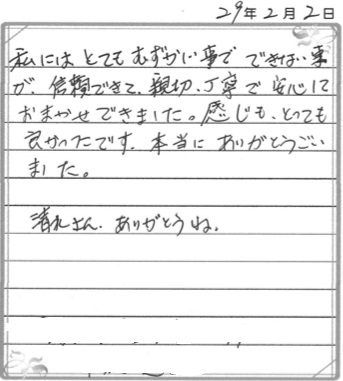 29年2月2日
私にはとてもむずかい事でできない事
が、信頼できて、親切、丁寧で安心して
おまかせできました。感じも、とっても
良かったです。本当にありがとうござい
ました。
清水さん、ありがとうね。